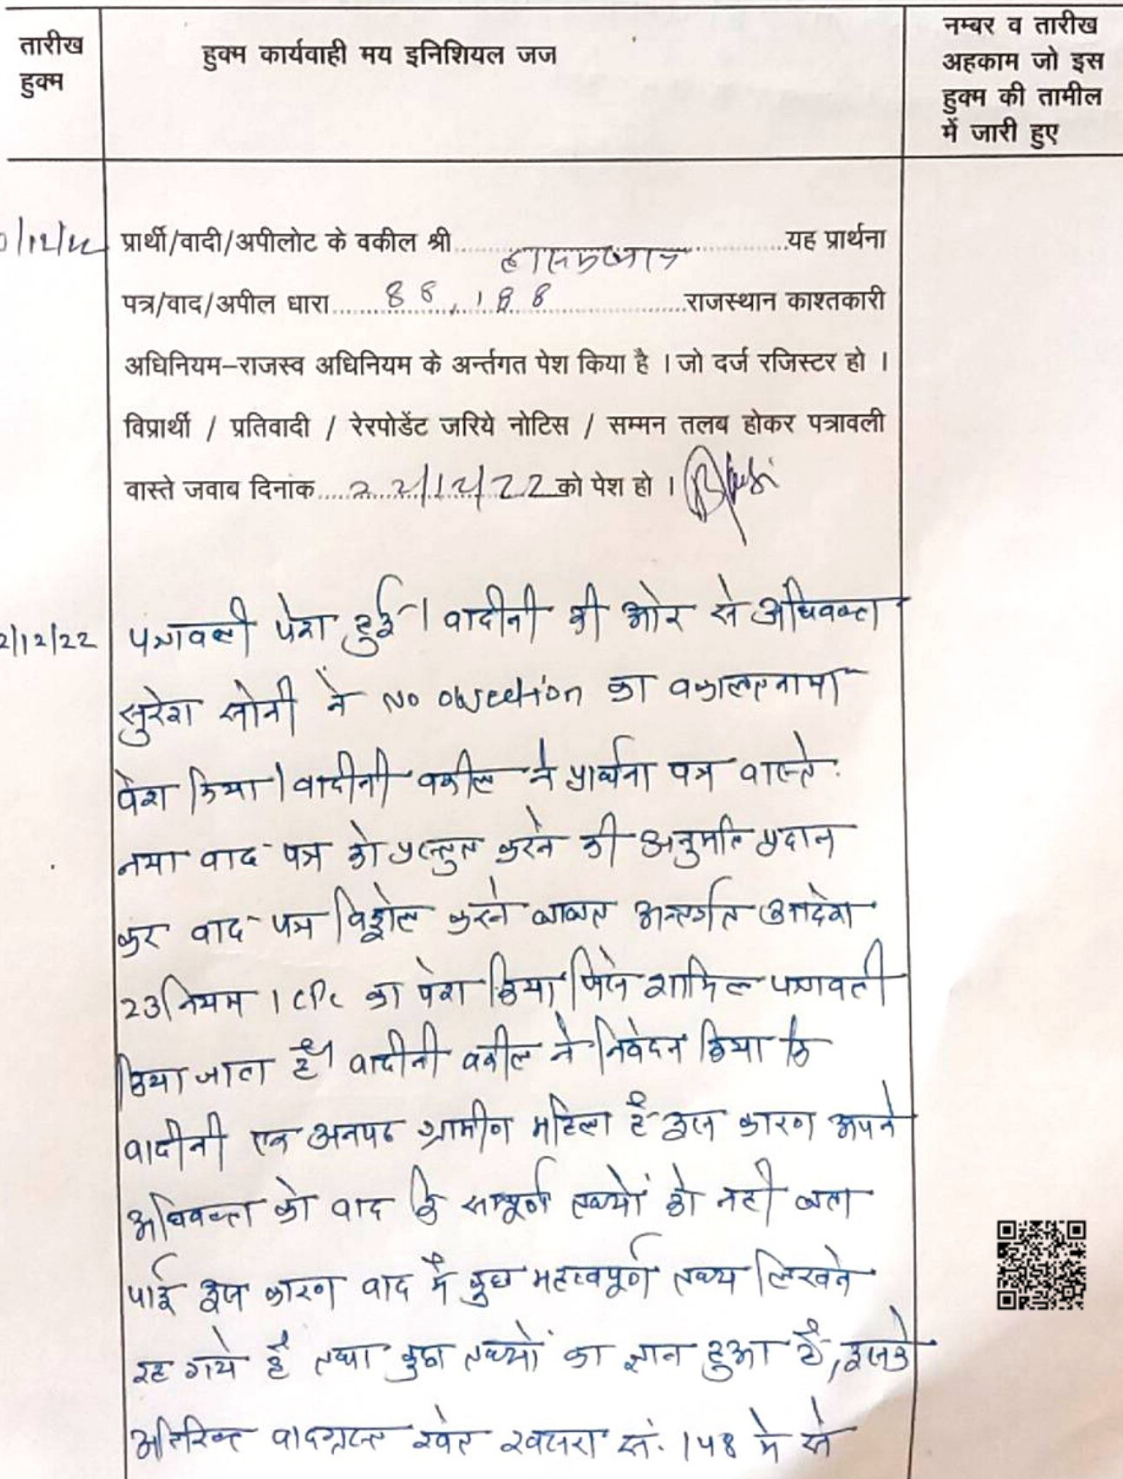 तारीख
हुक्म
हुक्म कार्यवाही मय इनिशियल जज
नम्बर व तारीख
अहकाम जो इस
हुक्म की तामील
में जारी हुए
/12/22 प्रार्थी/वादी/अपीलोट के वकील श्री.......... यह प्रार्थना
पत्र/वाद/अपील धारा.....88, 188.....राजस्थान काश्तकारी
अधिनियम–राजस्व अधिनियम के अर्न्तगत पेश किया है । जो दर्ज रजिस्टर हो ।
विप्रार्थी / प्रतिवादी / रेरपोडेंट जरिये नोटिस / सम्मन तलब होकर पत्रावली
वास्ते जवाब दिनांक...22/12/22...को पेश हो ।
2/12/22 पत्रावली पेश हुई। वादीनी की ओर से अधिवक्ता
सुरेश सोनी ने No objection का वकालतनामा
पेश किया। वादीनी वकील ने प्रार्थना पत्र वास्ते
नया वाद-पत्र को प्रस्तुत करने की अनुमति प्रदान
कर वाद-पत्र विड्रोल करने बाबत अन्तर्गत आदेश
23 नियम 1 CPC का पेश किया, जिसे शामिल पत्रावली
किया जाता है। वादीनी वकील ने निवेदन किया कि
वादीनी एक अनपढ ग्रामीण महिला है इस कारण अपने
अधिवक्ता को वाद के सम्पूर्ण तथ्यों को नही बता
पाई इस कारण वाद में कुछ महत्वपूर्ण तथ्य लिखने
रह गये है तथा कुछ तथ्यों का ज्ञान हुआ है, इसके
अतिरिक्त वादग्रस्त खेत खसरा सं. 148 मे से